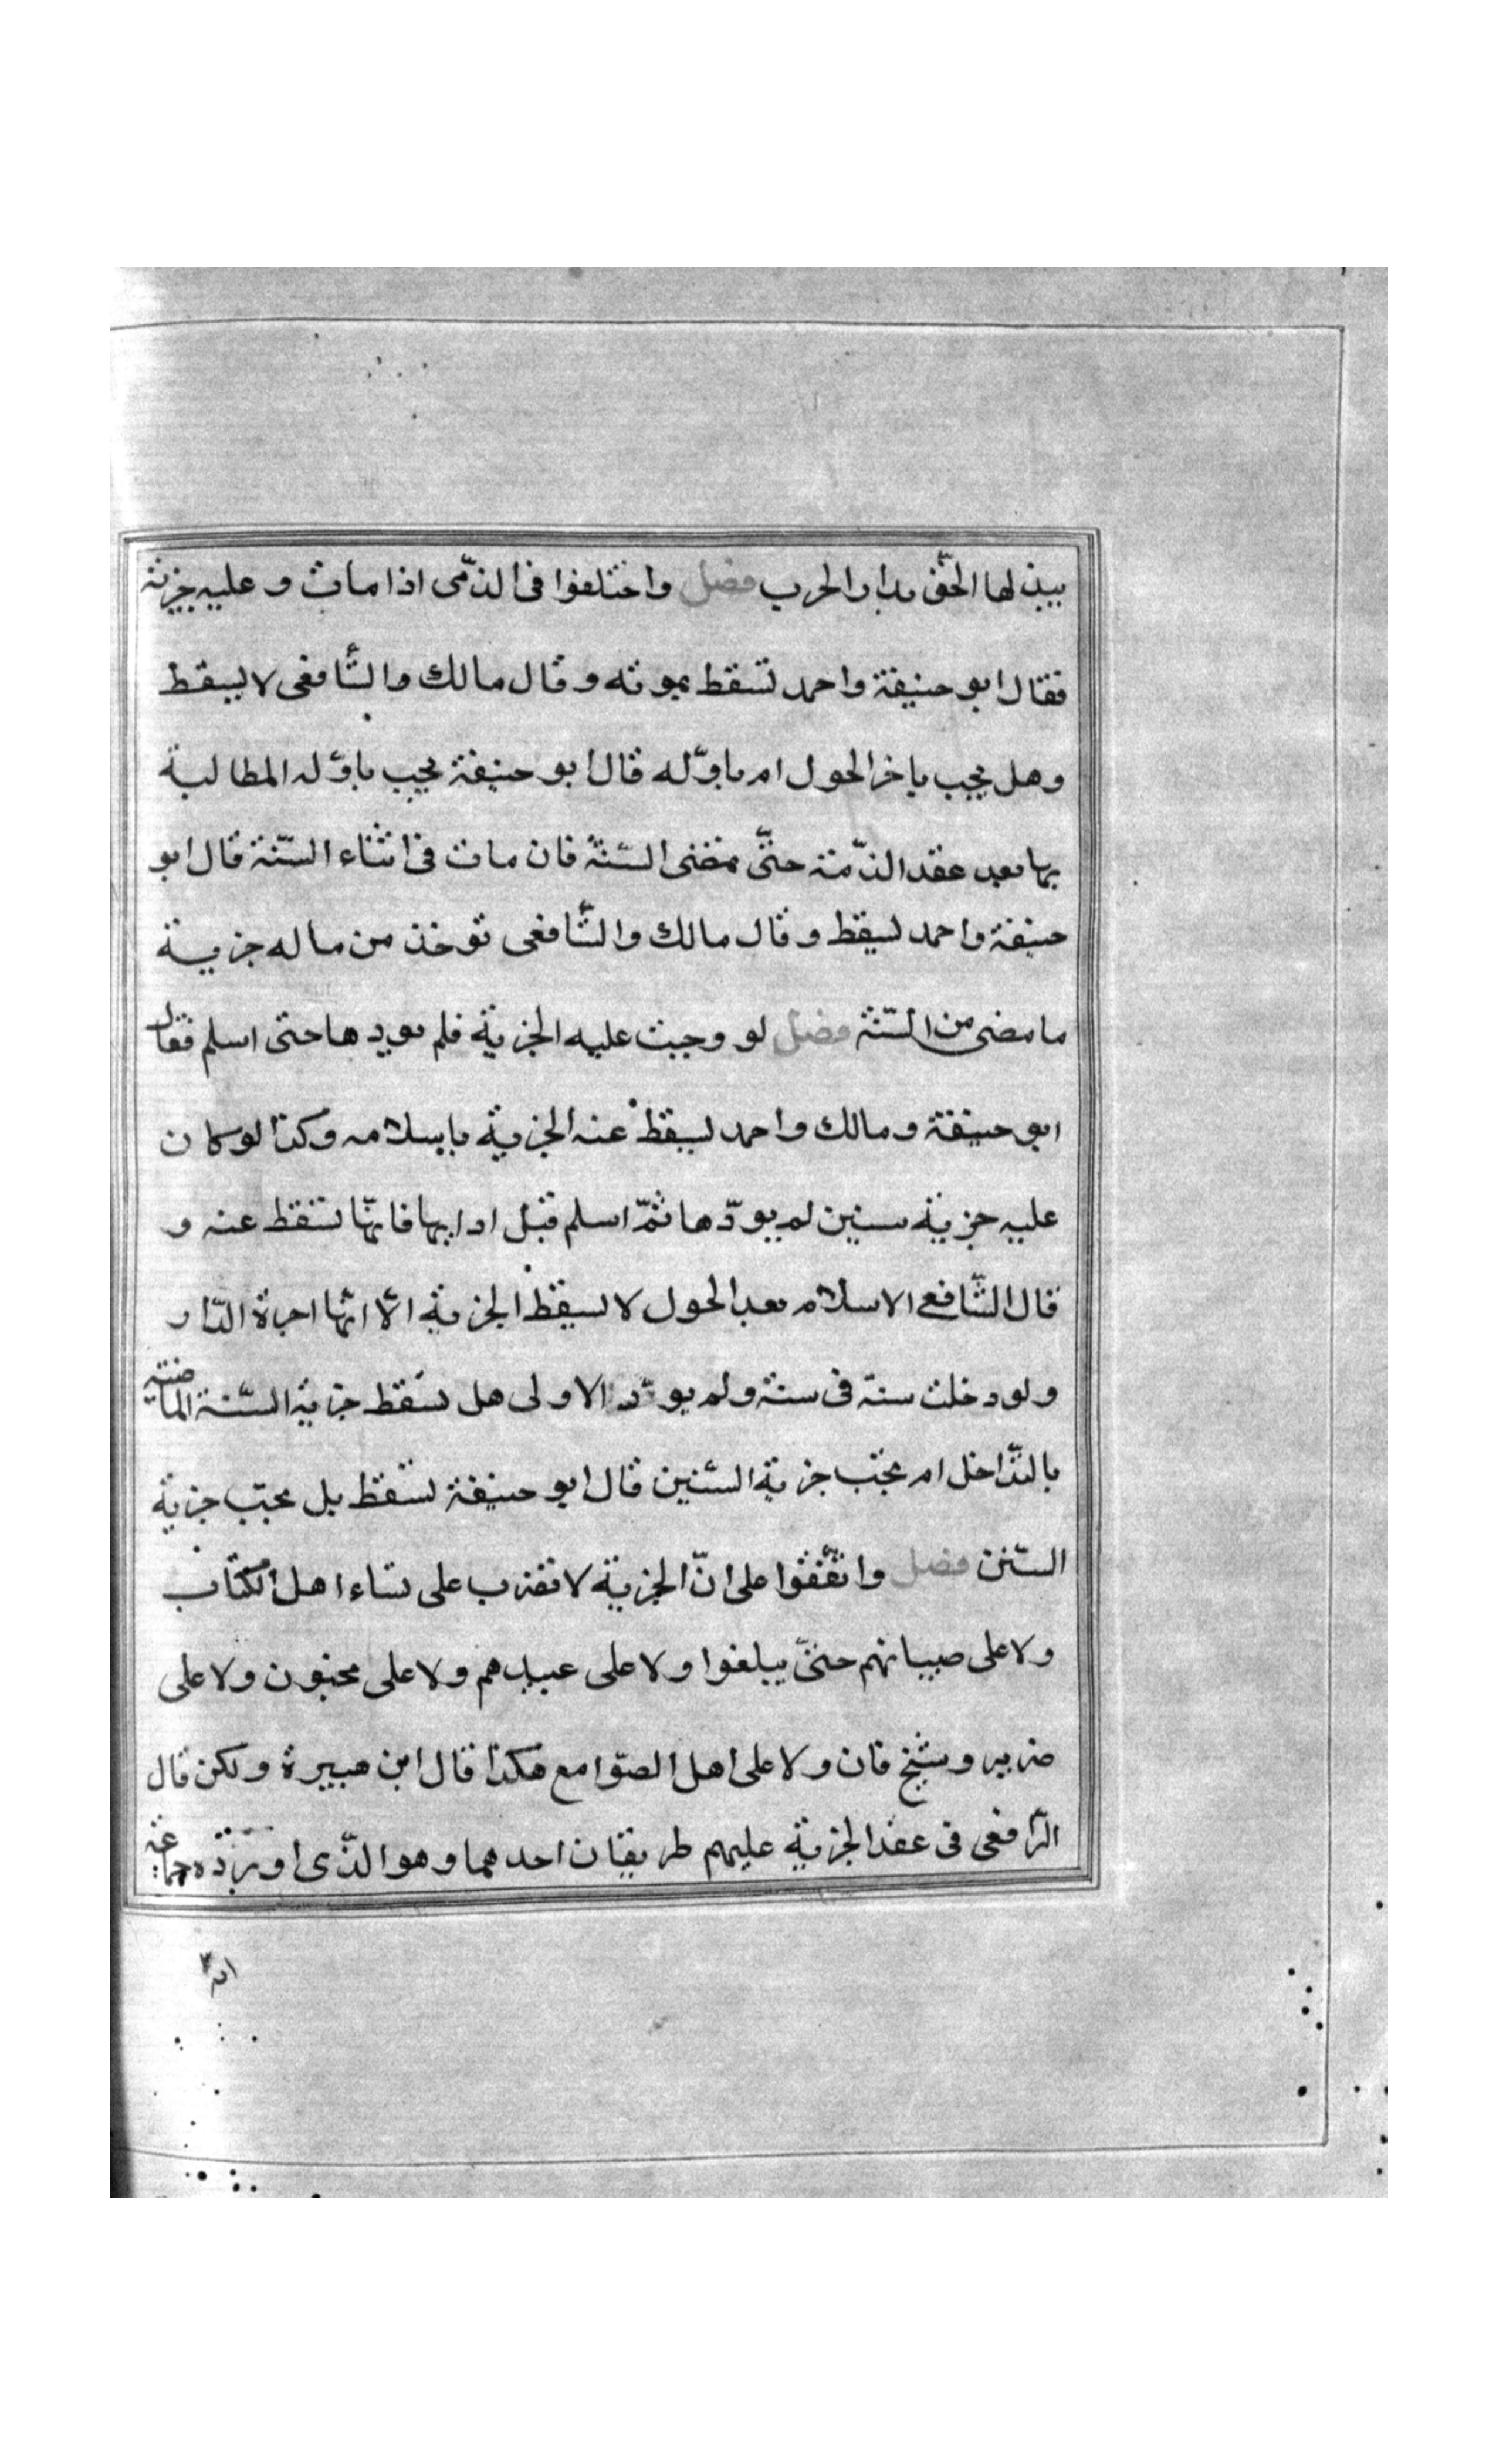 يبذلها الحق بدار الحرب فصل واختلفوا فى الذمّى اذا مات وعليه جزية
فقال ابو حنيفة واحمد تسقط بموته وقال مالك والشّافعى لا يسقط
وهل يجب باخر الحول ام باوّله قال ابو حنيفة يجب باوّله المطالبة
بها بعد عقد الذمّة حتّى تمضى السّنة فان مات فى اثناء السّنة قال ابو
حنيفة واحمد يسقط وقال مالك والشّافعى توخذ من ماله جزية
ما مضى من السّنة فصل لو وجبت عليه الجزية فلم يويدها حتى اسلم فقال
ابو حنيفة ومالك واحمد يسقط عنه الجزية باسلامه وكذا لو كان
عليه جزية سنين لم يودّها ثمّ اسلم قبل ادايها فانّها تسقط عنه و
قال الشّافعى الاسلام بعد الحول لا يسقط الجزية الّا انّها اجرة الدّار
ولو دخلت سنة فى سنة ولم يودّ الاولى هل تسقط جزية السّنة الماضية
بالتّداخل ام تجب جزية السّنين قال ابو حنيفة تسقط بل تجب جزية
السّنن فصل واتّفقوا على انّ الجزية لا تضرب على نساء اهل الكتاب
ولا على صبيانهم حتّى يبلغوا ولا على عبيدهم ولا على مجنون ولا على
ضرير وشيخ فان ولا على اهل الصّوامع هكذا قال ابن هبيرة ولكن قال
الرّافعى فى عقد الجزية عليهم طريقان احدهما وهو الذّى اورده جماعة